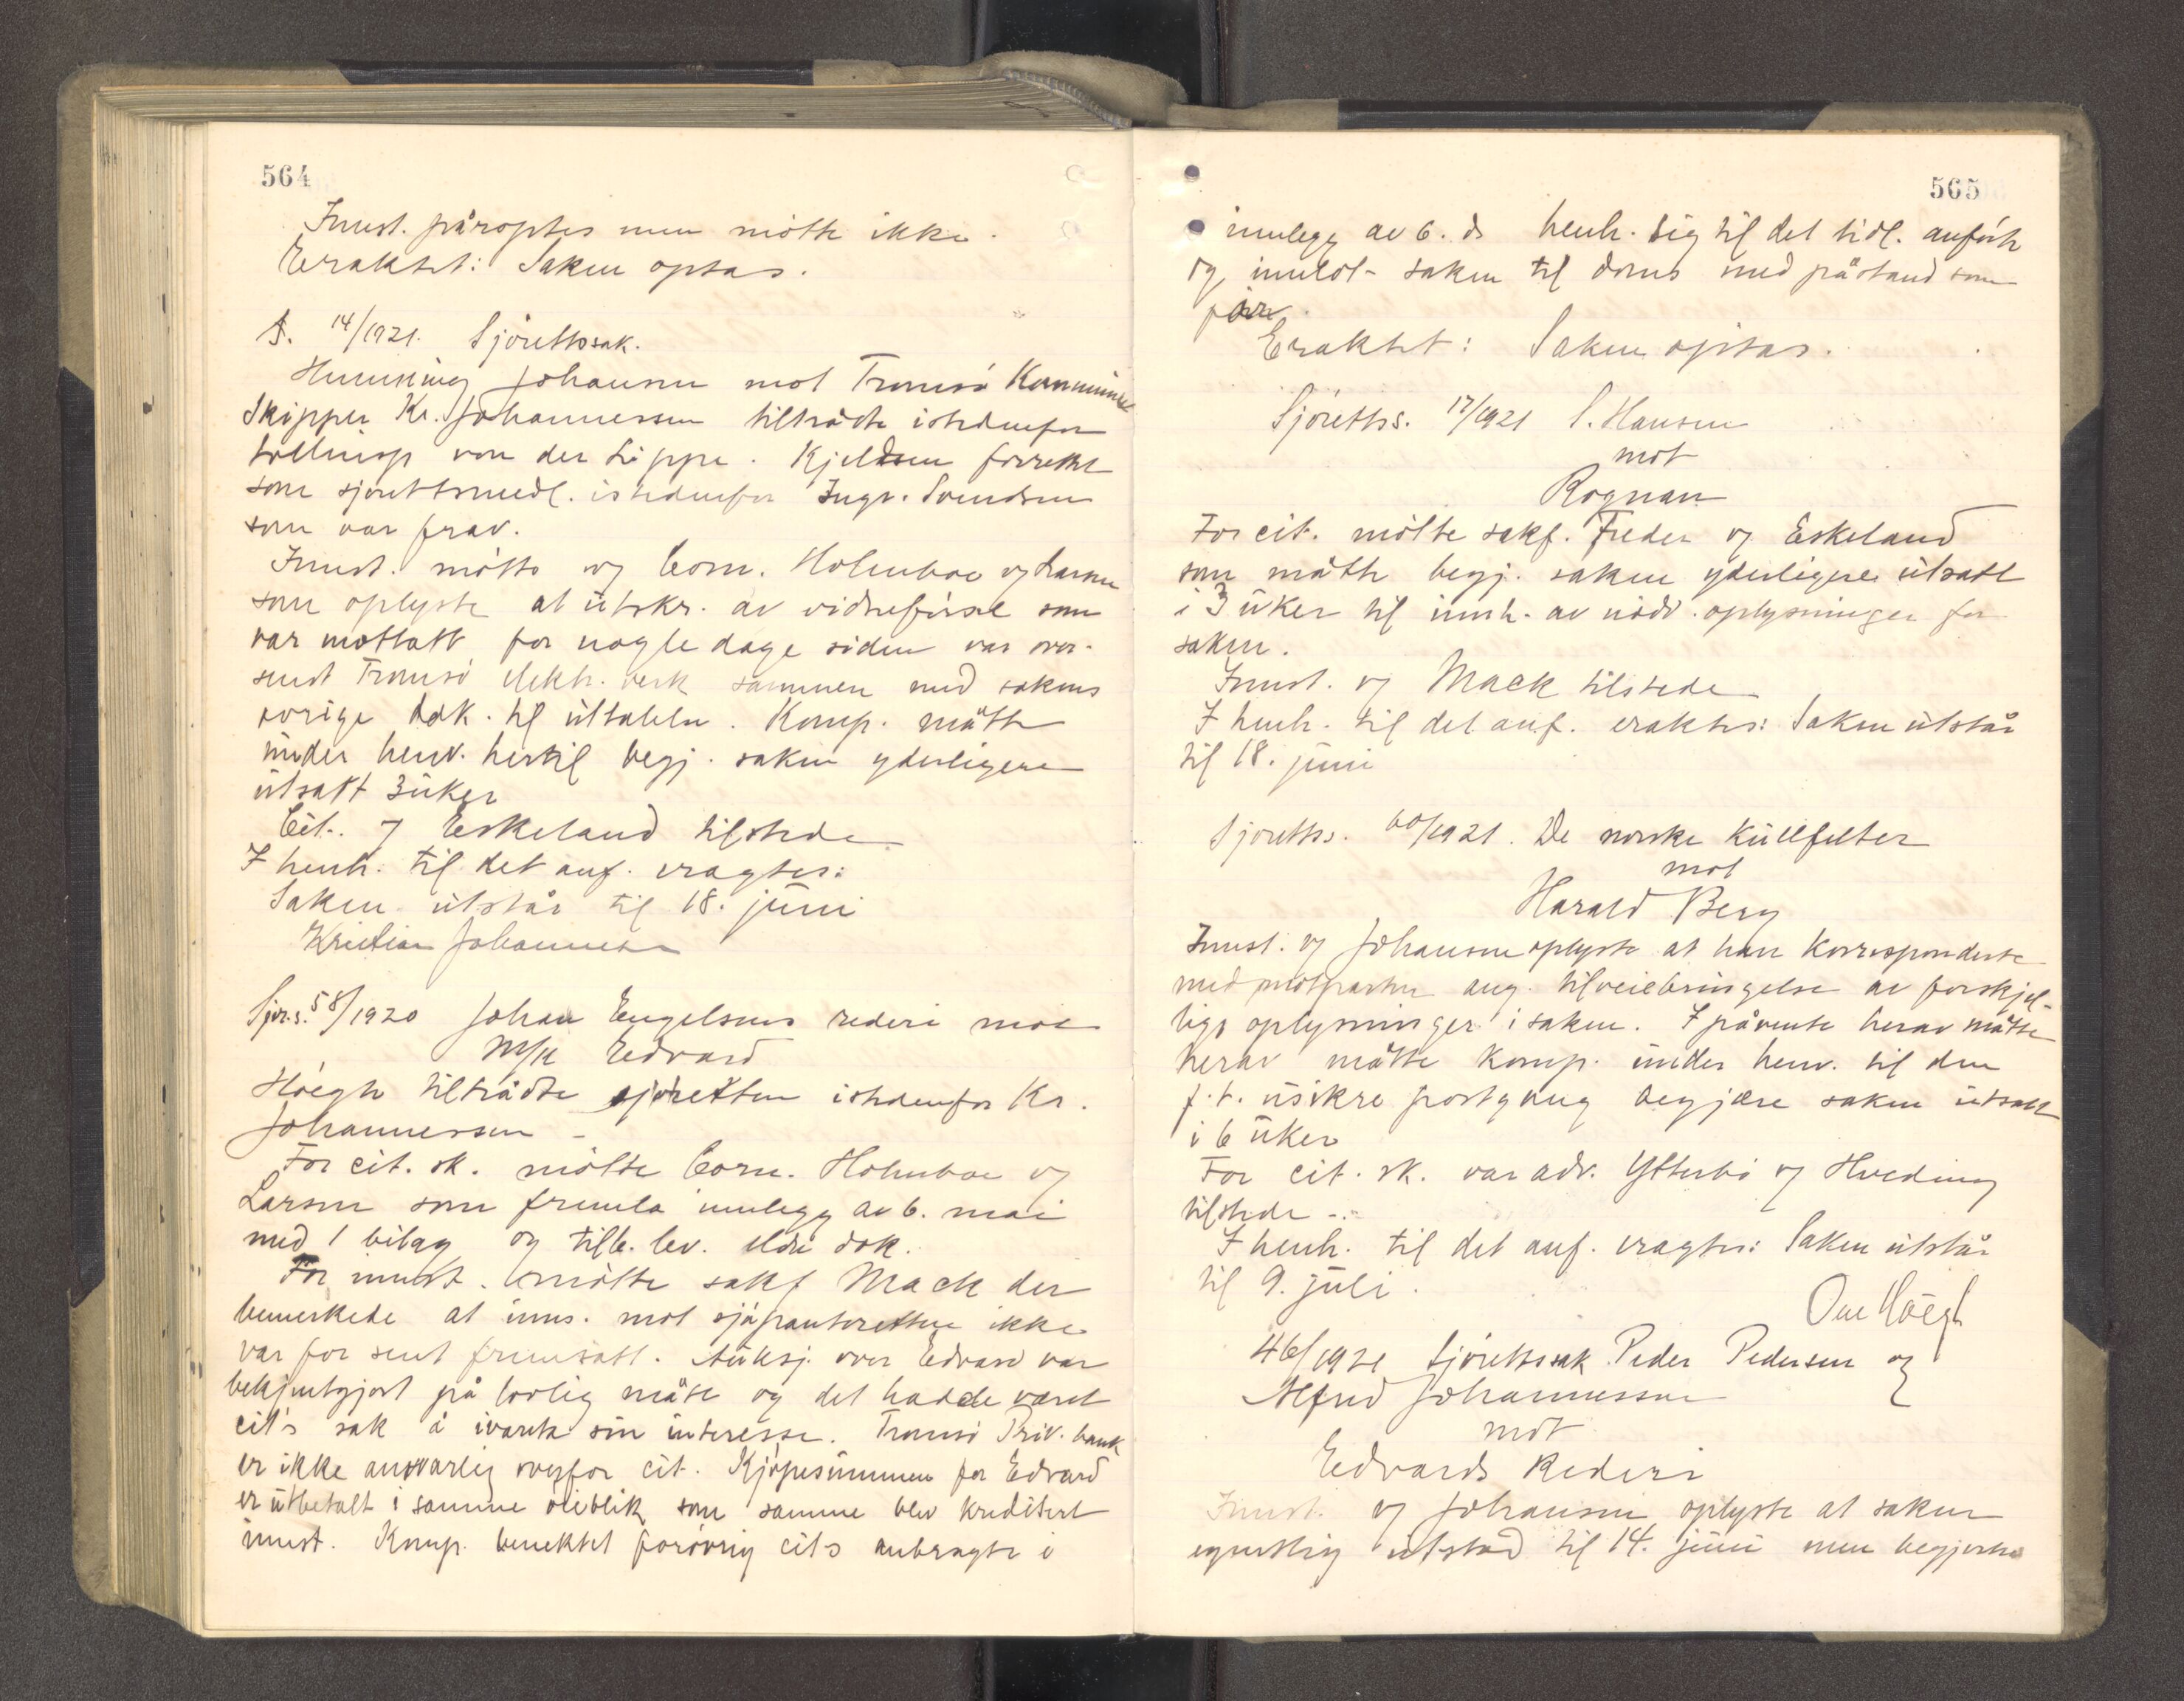 564
Innst. påroptes men møtte ikke.
Eraktet: Saken optas.
S. 14/1921. Sjörettssak.
Henning Johansen mot Tromsö Kommune
Skipper Kr. Johannessen tiltrådte istedenfor
tollinsp von der Lippe. Kjeldsen forrettet
som sjörettsmedl. istedenfor Ingv. Svendsen
som var frav.
Innst. møtte og Corn. Holmboe og Larsen
som oplyste at utskr. av vidneførsel som
var mottatt for nogle dage siden var over-
sendt Tromsö elektr. verk sammen med sakens
øvrige dok. til uttalelse. Komp. måtte
under henv. hertil begj. saken yderligere
utsatt 3 uker
Cit. og Eskeland tilstede
I henh. til det anf. eragtes:
Saken utstår til 18. juni
Kristian Johannessen
Sjör.s. 58/1920 Johan Engelsens rederi mot
M/K Edvard
Höegh tiltrådte sjøretten istedenfor Kr.
Johannessen -
For cit. sk. mötte Corn. Holmboe og
Larsen som fremla innlegg av 6. mai
med 1 bilag og tilb. lev. eldre dok.
For innst. mötte sakf Mack der
bemerkede at inns. mot sjøpanteretten ikke
var for sent fremsatt. Auksj. over Edvard var
bekjentgjort på lovlig måte og det hadde været
cit's sak å ivareta sin interesse. Tromsö Priv. bank
er ikke ansvarlig ovenfor cit. Kjøpesummen for Edvard
er utbetalt i samme øieblik som samme blev kreditert
innst. Komp. benektet forøvrig cit's anbragte i
565
innlegg av 6. ds henh. sig til det tidl. anförte
og innlot saken til doms med påstand som
före.
Eraktet: Saken optas.
Sjöretts. 17/1921 S. Hansen
mot
Rognan
For cit. mötte sakf. Feder og Eskeland
som måtte begj. saken yderligere utsatt
i 3 uker til innh. av nödv. oplysninger for
saken.
Innst. og Mack tilstede
I henh. til det anf. eraktes: Saken utstår
til 18. juni
Sjöretts. 60/1921. De norske Kullfelter
mot
Harald Berg
Innst. og Johansen oplyste at han Korresponderte
med motparten ang. tilveiebringelse av forskjel-
lige oplysninger i saken. I påvente herav måtte
herav måtte komp. under henv. til den
f.t. usikre postgang begjære saken utsatt
i 6 uker
For cit. sk. var adv. Ytterbö og Hveding
tilstede -.
I henh. til det anf. eragtes: Saken utstår
til 9. juli.
Ove Höegh
46/1921 Sjörettssak Peder Pedersen og
Alfred Johannessen
mot
Edvards Rederi
Innst. og Johansen oplyste at saken
egentlig utstod til 14. juni men begjærte